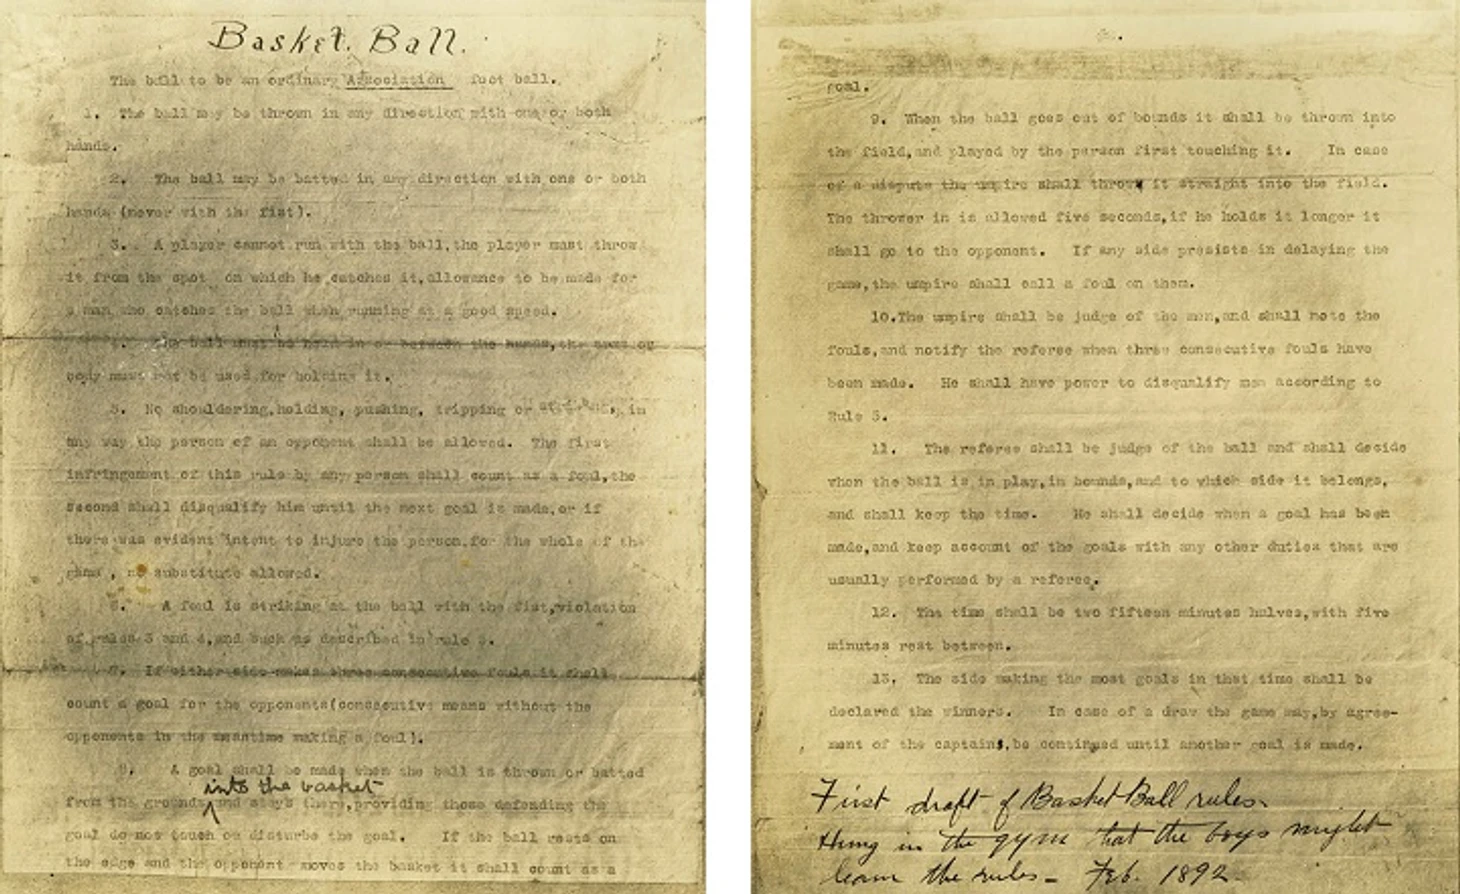 Basket Ball.
The ball to be an ordinary Association foot ball.
1. The ball may be thrown in any direction with one or both
hands.
2. The ball may be batted in any direction with one or both
hands (never with the fist).
3. A player cannot run with the ball, the player must throw
it from the spot on which he catches it, allowance to be made for
a man who catches the ball when running at a good speed.
4. The ball must be held in or between the hands, the arms or
body must not be used for holding it.
5. No shouldering, holding, pushing, tripping or striking, in
any way the person of an opponent shall be allowed. The first
infringement of this rule by any person shall count as a foul, the
second shall disqualify him until the next goal is made, or if
there was evident intent to injure the person, for the whole of the
game, no substitute allowed.
6. A foul is striking at the ball with the fist, violation
of rules 3 and 4, and such as described in rule 5.
7. If either side makes three consecutive fouls it shall
count a goal for the opponents (consecutive means without the
opponents in the meantime making a foul).
8. A goal shall be made when the ball is thrown or batted
into the basket
from the grounds and stays there, providing those defending the
goal do not touch or disturbe the goal. If the ball rests on
the edge and the opponent moves the basket it shall count as a
goal.
9. When the ball goes out of bounds it shall be thrown into
the field, and played by the person first touching it. In case
of a dispute the umpire shall throw it straight into the field.
The thrower in is allowed five seconds, if he holds it longer it
shall go to the opponent. If any side presists in delaying the
game, the umpire shall call a foul on them.
10. The umpire shall be judge of the men, and shall note the
fouls, and notify the referee when three consecutive fouls have
been made. He shall have power to disqualify men according to
Rule 5.
11. The referee shall be judge of the ball and shall decide
when the ball is in play, in bounds, and to which side it belongs,
and shall keep the time. He shall decide when a goal has been
made, and keep account of the goals with any other duties that are
usually performed by a referee.
12. The time shall be two fifteen minutes halves, with five
minutes rest between.
13. The side making the most goals in that time shall be
declared the winners. In case of a draw the game may, by agree-
ment of the captains, be continued until another goal is made.
First draft of Basket Ball rules.
Hung in the gym that the boys might
learn the rules - Feb. 1892